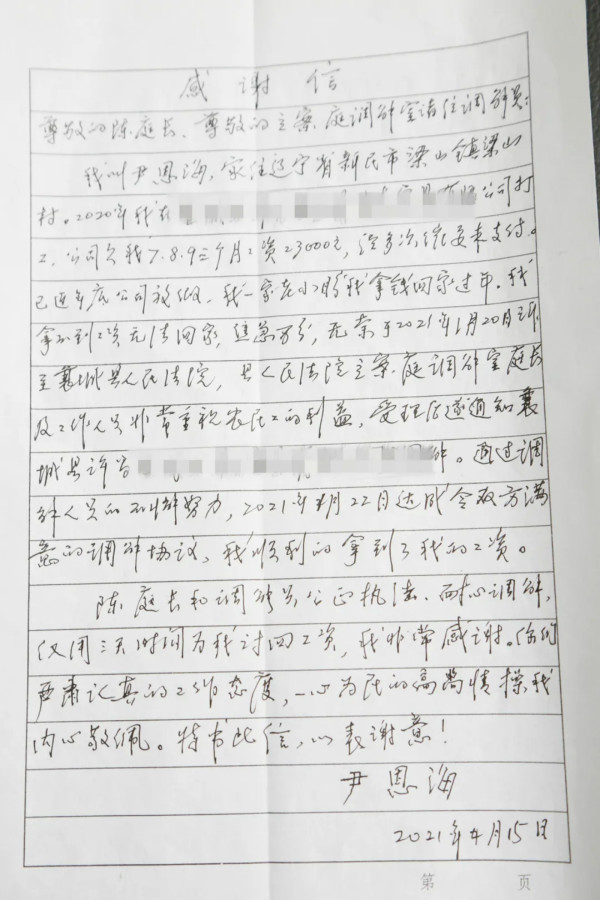 感谢信
尊敬的陈庭长、尊敬的立案庭调解室诸位调解员:
我叫尹恩海,家住辽宁省新民市梁山镇梁山
村。2020年我在 公司打
工,公司欠我7.8.9三个月工资23000元,经多次催要未支付。
已近年底公司放假,我一家老小盼我拿钱回家过年,我
拿不到工资无法回家,焦急万分,无奈于2021年1月20日
至襄城县人民法院,县人民法院立案庭调解室庭长
及工作人员非常重视农民工的利益,受理后遂通知襄
城县许 。通过调
解人员的不懈努力,2021年 月22日达成令双方满
意的调解协议,我顺利的拿到了我的工资。
陈庭长和调解员公正执法、耐心调解,
仅用三天时间为我讨回工资,我非常感谢。你们
严肃认真的工作态度,一心为民的高尚情操我
内心敬佩。特书此信,以表谢意!
尹恩海
2021年 月15日
第 页